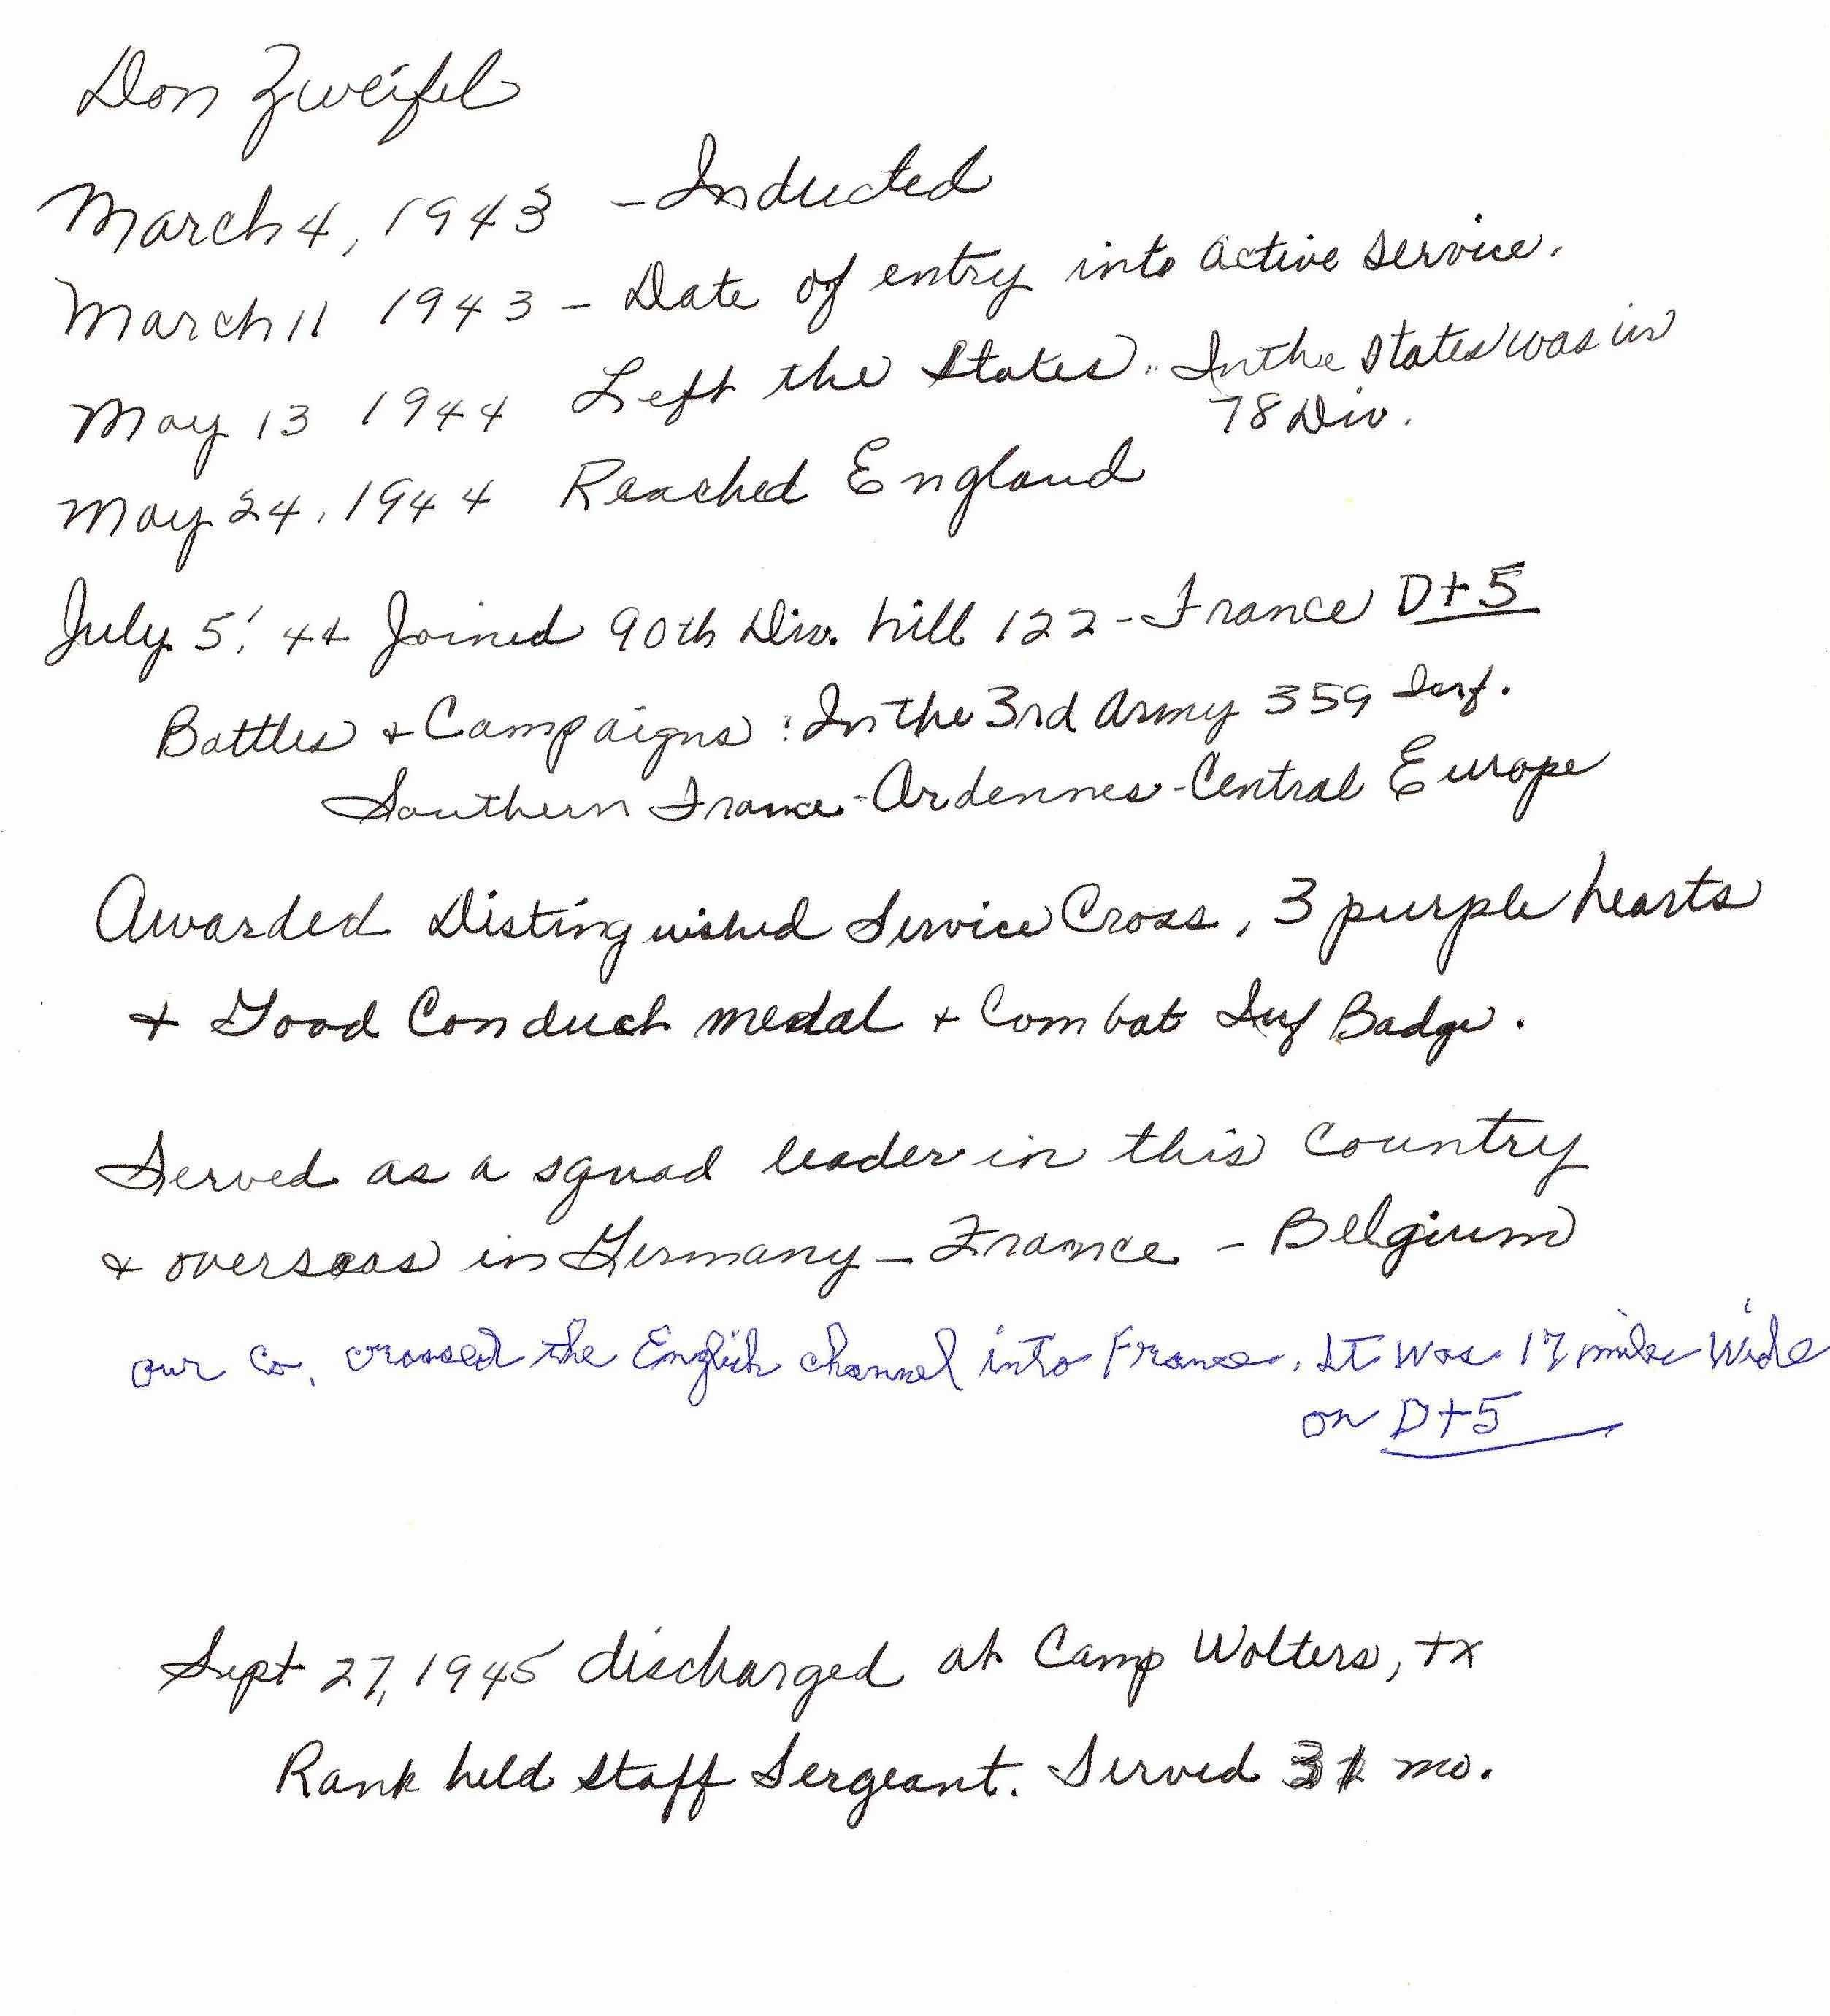 Don Zweifel
March 4, 1943 - Inducted
March 11 1943 - Date of entry into active service.
May 13 1944 Left the States. In the States was in
78 Div.
May 24, 1944 Reached England
July 5, '44 Joined 90th Div. hill 122 - France D+5
Battles + Campaigns: In the 3rd Army 359 Inf.
Southern France - Ardennes - Central Europe
Awarded Distinguished Service Cross, 3 purple hearts
+ Good Conduct medal + Combat Inf Badge.
Served as a squad leader in this country
+ overseas in Germany - France - Belgium
our Co. crossed the English channel into France. It was 17 miles wide
on D+5
Sept 27, 1945 discharged at Camp Wolters, TX
Rank held Staff Sergeant. Served 31 mo.